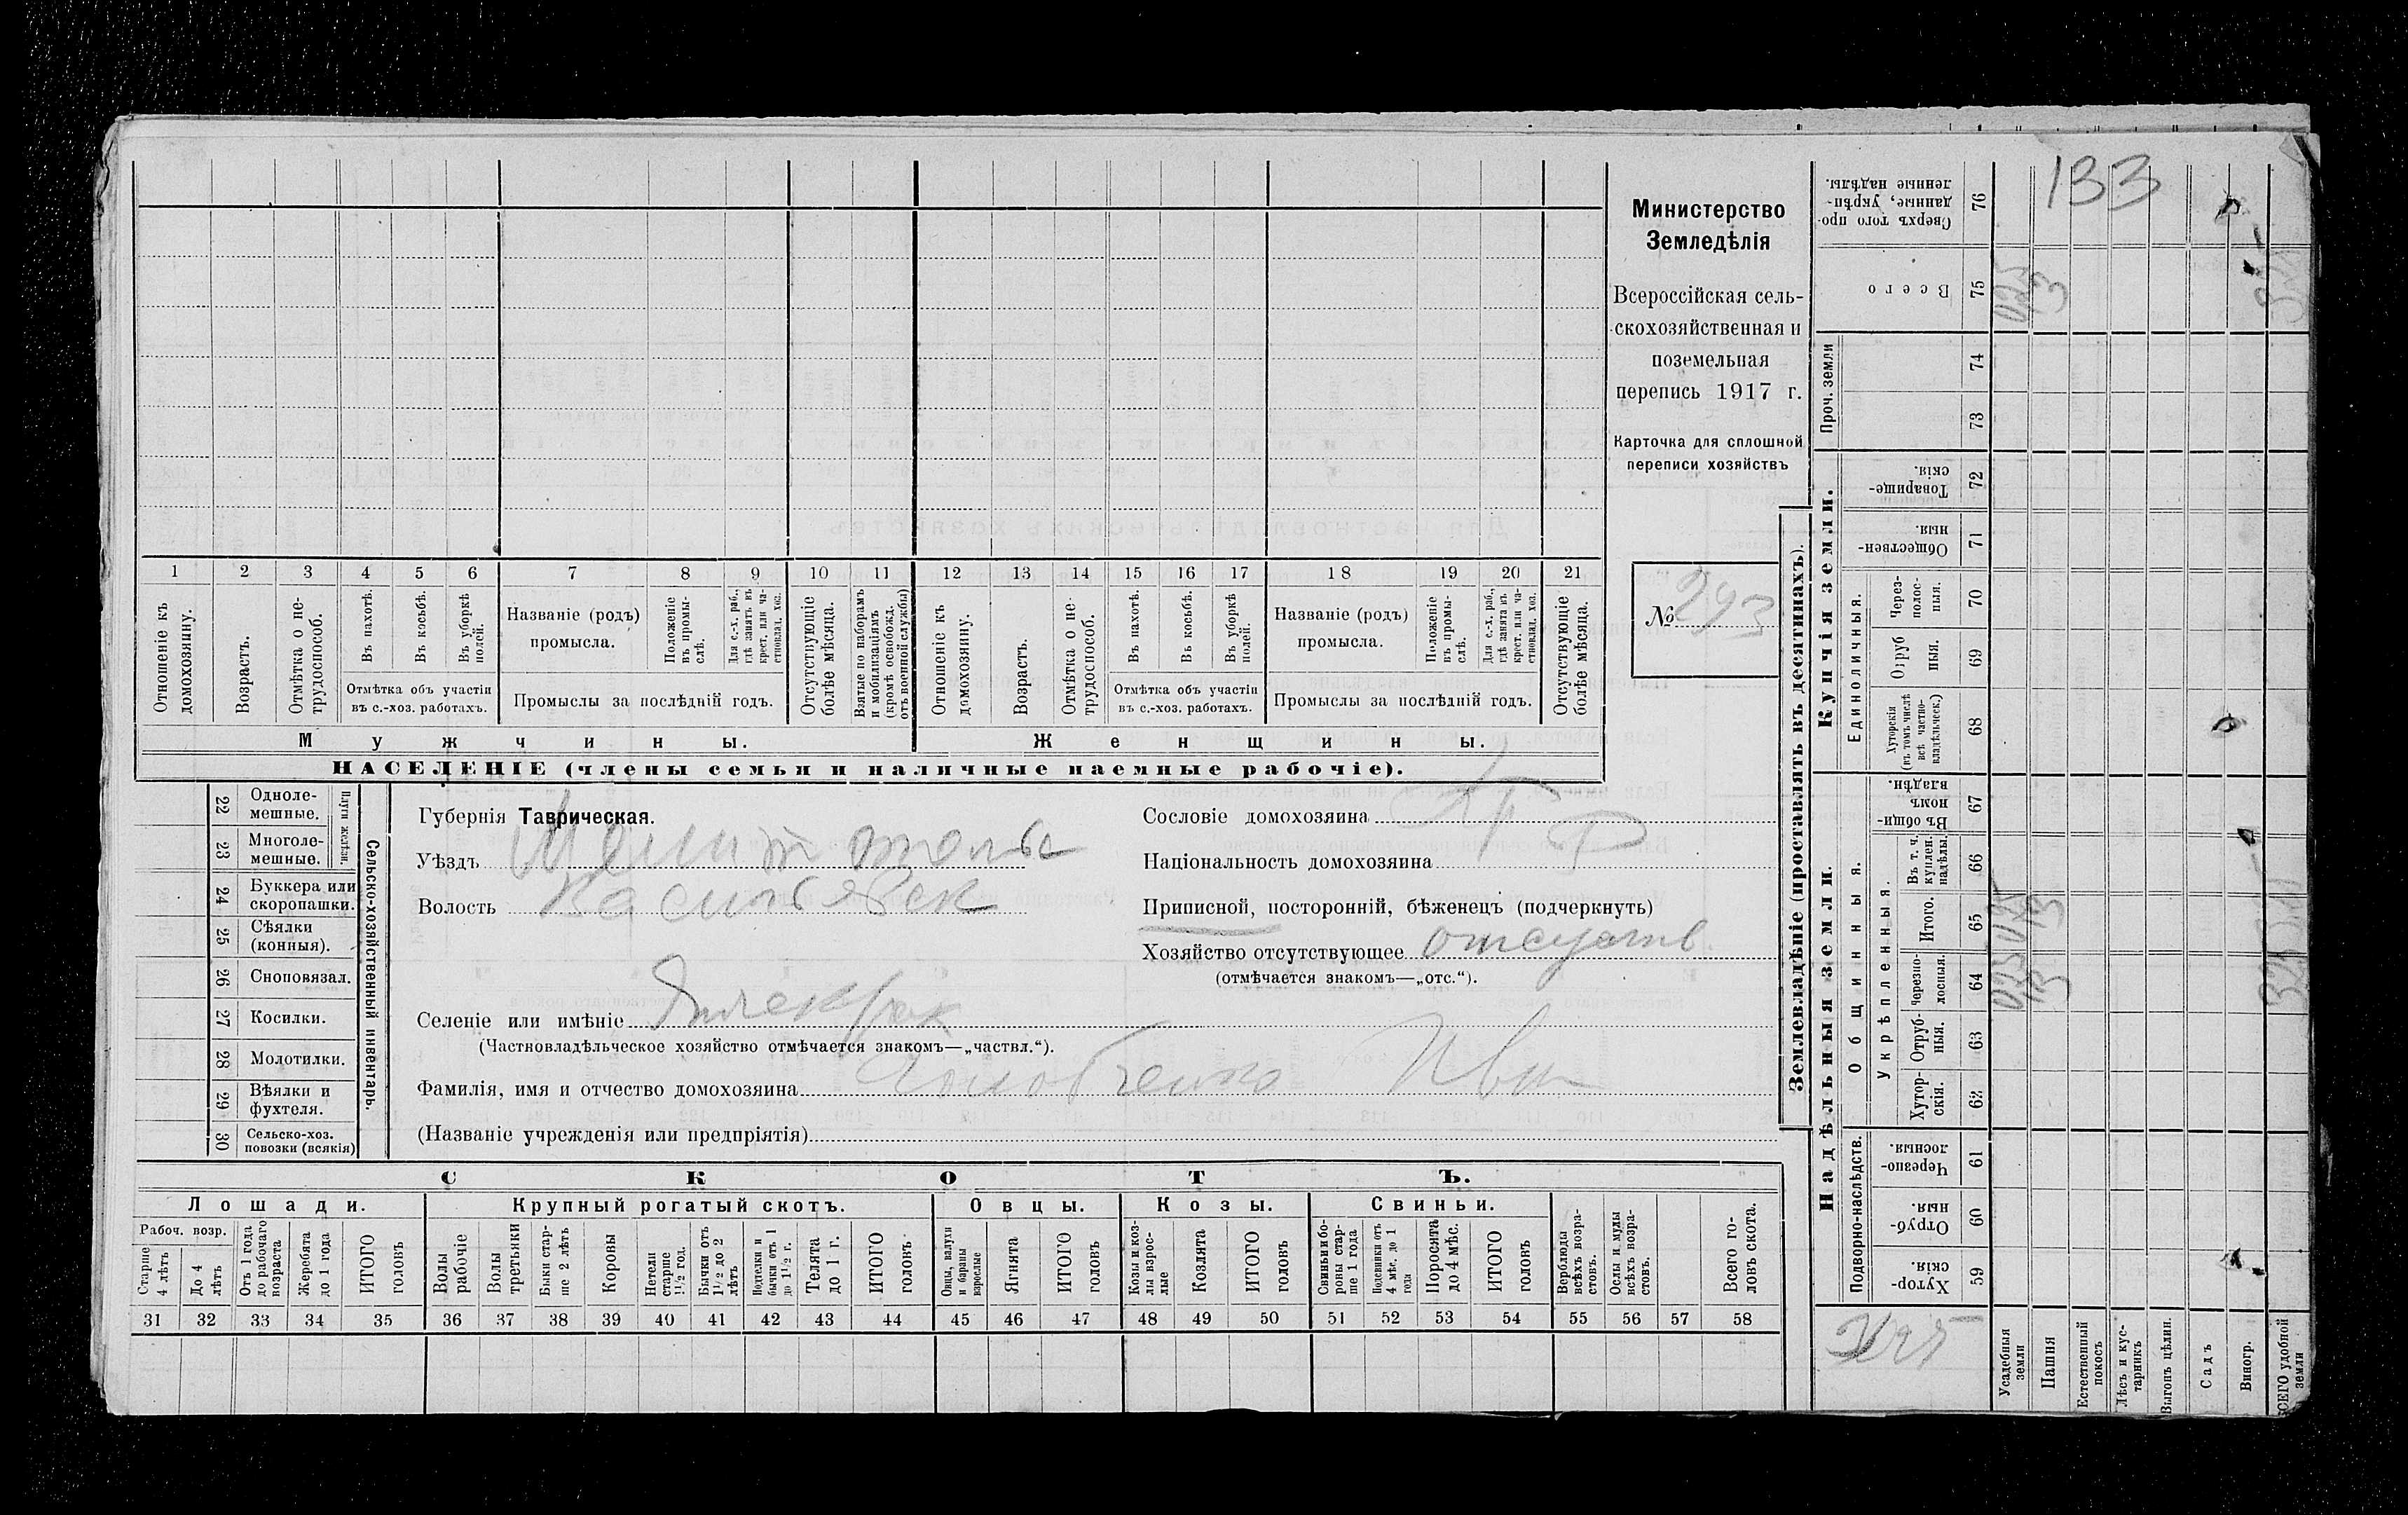 133
Министерство
Земледѣлія
Всероссійская сель-
скохозяйственная и
поземельная
перепись 1917 г.
Карточка для сплошной
переписи хозяйствъ
№ 293
1 2 3 4 5 6 7 8 9 10 11 12 13 14 15 16 17 18 19 20 21
Отношеніе къ домохозяину.
Возрастъ.
Отмѣтка о не-трудоспособ.
Въ пахотѣ.
Въ косьбѣ.
Въ уборкѣ полей.
Отмѣтка объ участіи
въ с.-хоз. работахъ.
Названіе (родъ)
промысла.
Положеніе въ промы-слѣ.
Для с.-х. раб., гдѣ занятъ въ крест. или ча-стновлад. хоз.
Промыслы за послѣдній годъ.
Отсутствующіе болѣе мѣсяца.
Взятые по наборамъ и мобилизаціямъ (кромѣ освобожд. отъ военной службы)
Отношеніе къ домохозяину.
Возрастъ.
Отмѣтка о не-трудоспособ.
Въ пахотѣ.
Въ косьбѣ.
Въ уборкѣ полей.
Отмѣтка объ участіи
въ с.-хоз. работахъ.
Названіе (родъ)
промысла.
Положеніе въ промы-слѣ.
Для с.-х. раб., гдѣ занята въ крест. или ча-стновлад. хоз.
Промыслы за послѣдній годъ.
Отсутствующіе болѣе мѣсяца.
Мужчины. Женщины.
НАСЕЛЕНІЕ (члены семьи и наличные наемные рабочіе).
22 Одноле-мешные.
23 Многоле-мешные.
Плуги желѣзн.
24 Буккера или скоропашки.
25 Сѣялки (конныя).
26 Сноповязал.
27 Косилки.
28 Молотилки.
29 Вѣялки и фухтеля.
30 Сельско-хоз. повозки (всякія)
Сельско-хозяйственный инвентарь.
Губернія Таврическая.
Уѣздъ
Волость Васильевск
Селеніе или имѣніе Янчекрак
(Частновладѣльческое хозяйство отмѣчается знакомъ—„частвл.“).
Фамилія, имя и отчество домохозяина Ив
(Названіе учрежденія или предпріятія)
Сословіе домохозяина Кр
Національность домохозяина Р
Приписной, посторонній, бѣженецъ (подчеркнуть)
Хозяйство отсутствующее отсутств
(отмѣчается знакомъ—„отс.“).
СКОТЪ.
Лошади. Крупный рогатый скотъ. Овцы. Козы. Свиньи.
Рабоч. возр.
Старше 4 лѣтъ
До 4 лѣтъ
Отъ 1 года до рабочаго возраста
Жеребята до 1 года
ИТОГО головъ
Волы рабочіе
Волы третьяки
Быки стар-ше 2 лѣтъ
Коровы
Нетели старше 1½ год.
Бычки отъ 1½ до 2 лѣтъ
Подтелки и бычки отъ 1 до 1½ г.
Телята до 1 г.
ИТОГО головъ
Овцы, валухи и бараны взрослые
Ягнята
ИТОГО головъ
Козы и коз-лы взрос-лые
Козлята
ИТОГО головъ
Свиньи и бо-ровы стар-ше 1 года
Подсвинки отъ 4 мѣс. до 1 года
Поросята до 4 мѣс.
ИТОГО головъ
Верблюды всѣхъ возра-стовъ.
Ослы и мулы всѣхъ возра-стовъ.
Всего го-ловъ скота.
31 32 33 34 35 36 37 38 39 40 41 42 43 44 45 46 47 48 49 50 51 52 53 54 55 56 57 58
Землевладѣніе (проставлять въ десятинахъ).
Купчія земли.
Надѣльныя земли.
Сверхъ того про-данные, укрѣп-ленные надѣлы. 76
Всего 75
Проч. земли 74
73
Товарище-скія. 72
Обществен-ныя. 71
Единоличныя.
Через-полос-ныя. 70
Отруб-ныя. 69
Хуторскія (въ томъ числѣ всѣ частно-владѣльческ.) 68
Общинныя.
Въ общи-номъ владѣн. 67
Укрѣпленныя.
Въ т. ч. куплен. надѣлы. 66
Итого. 65
Черезпо-лосныя. 64
Отруб-ныя. 63
Хутор-скія. 62
Подворно-наслѣдств.
Черезпо-лосныя. 61
Отруб-ныя. 60
Хутор-скія. 59
Усадебныя земли
Пашня
Естественный покосъ
Лѣсъ и кус-тарникъ
Выгонъ цѣлин.
Садъ
Виногр.
ВСЕГО удобной земли